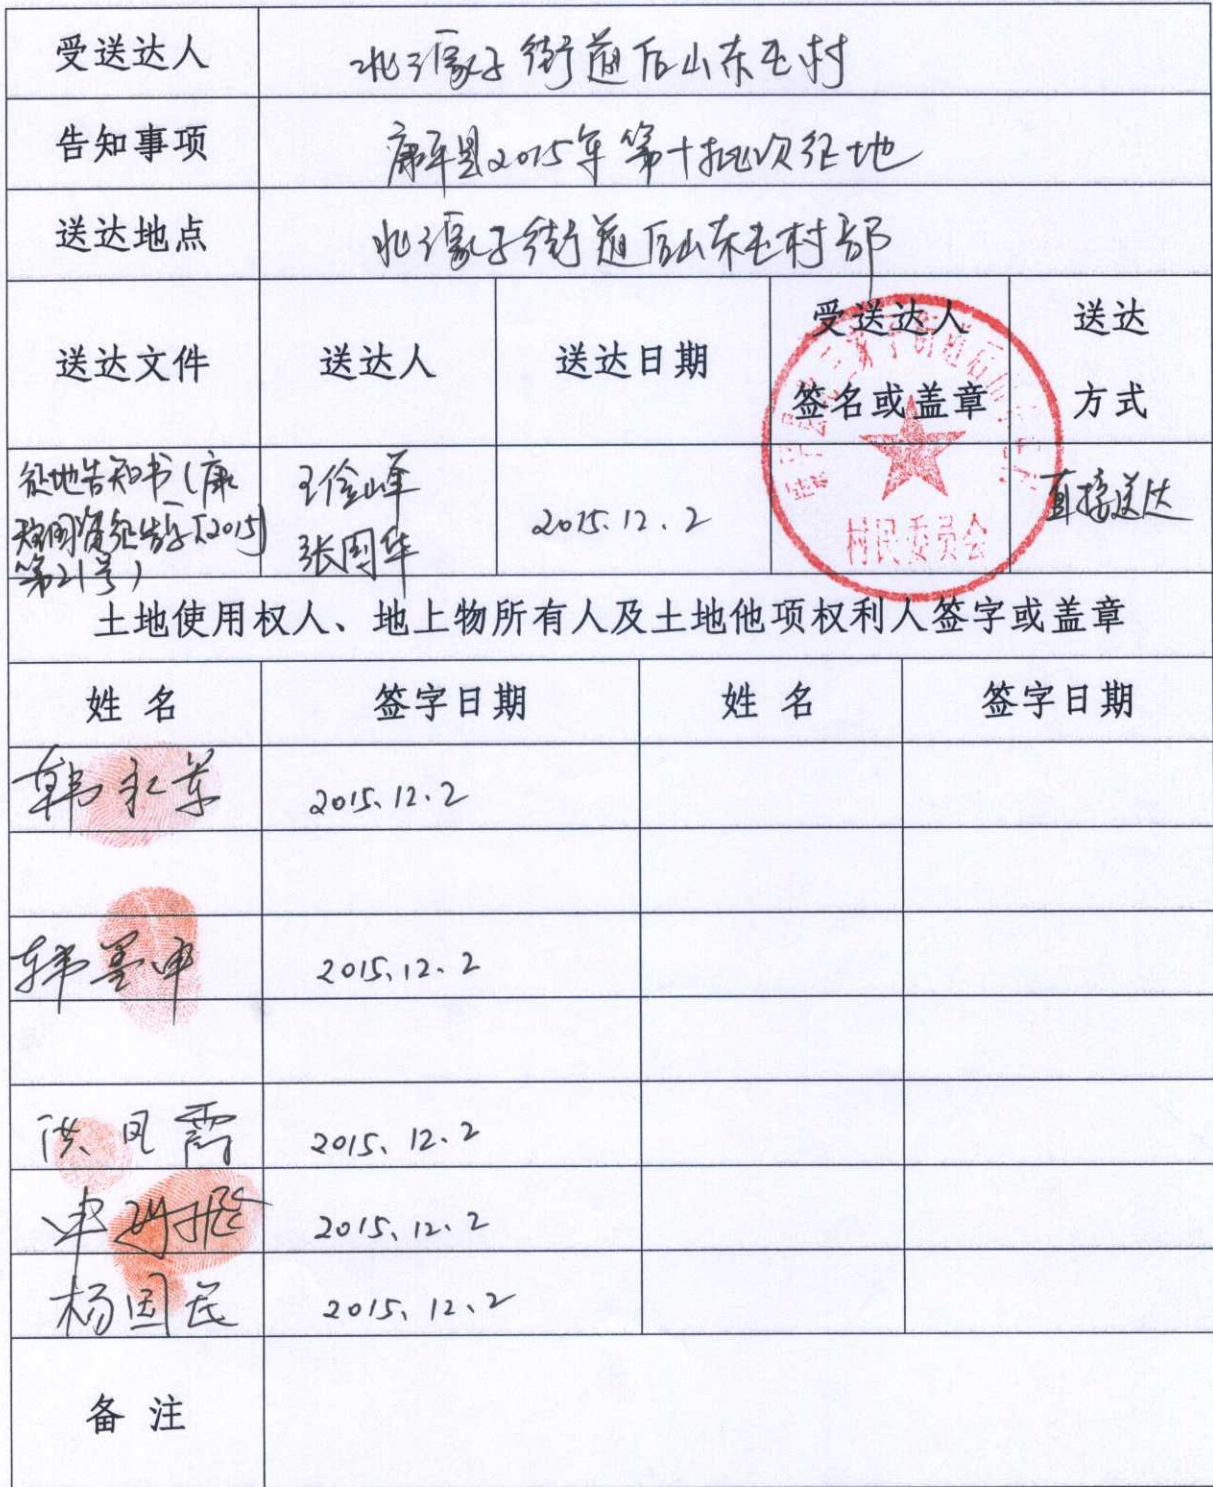 受送达人 北三家子街道后山东屯村
告知事项 康平县2015年第十批次征地
送达地点 北三家子街道后山东屯村部
送达文件 送达人 送达日期 受送达人签名或盖章 送达方式
征地告知书(康
国资征告字[2015]
第21号)
王俭峰
张国华
2015.12.2
村民委员会
直接送达
土地使用权人、地上物所有人及土地他项权利人签字或盖章
姓名 签字日期 姓名 签字日期
韩 2015.12.2
韩 2015.12.2
洪凤霞 2015.12.2
2015.12.2
杨国民 2015.12.2
备注